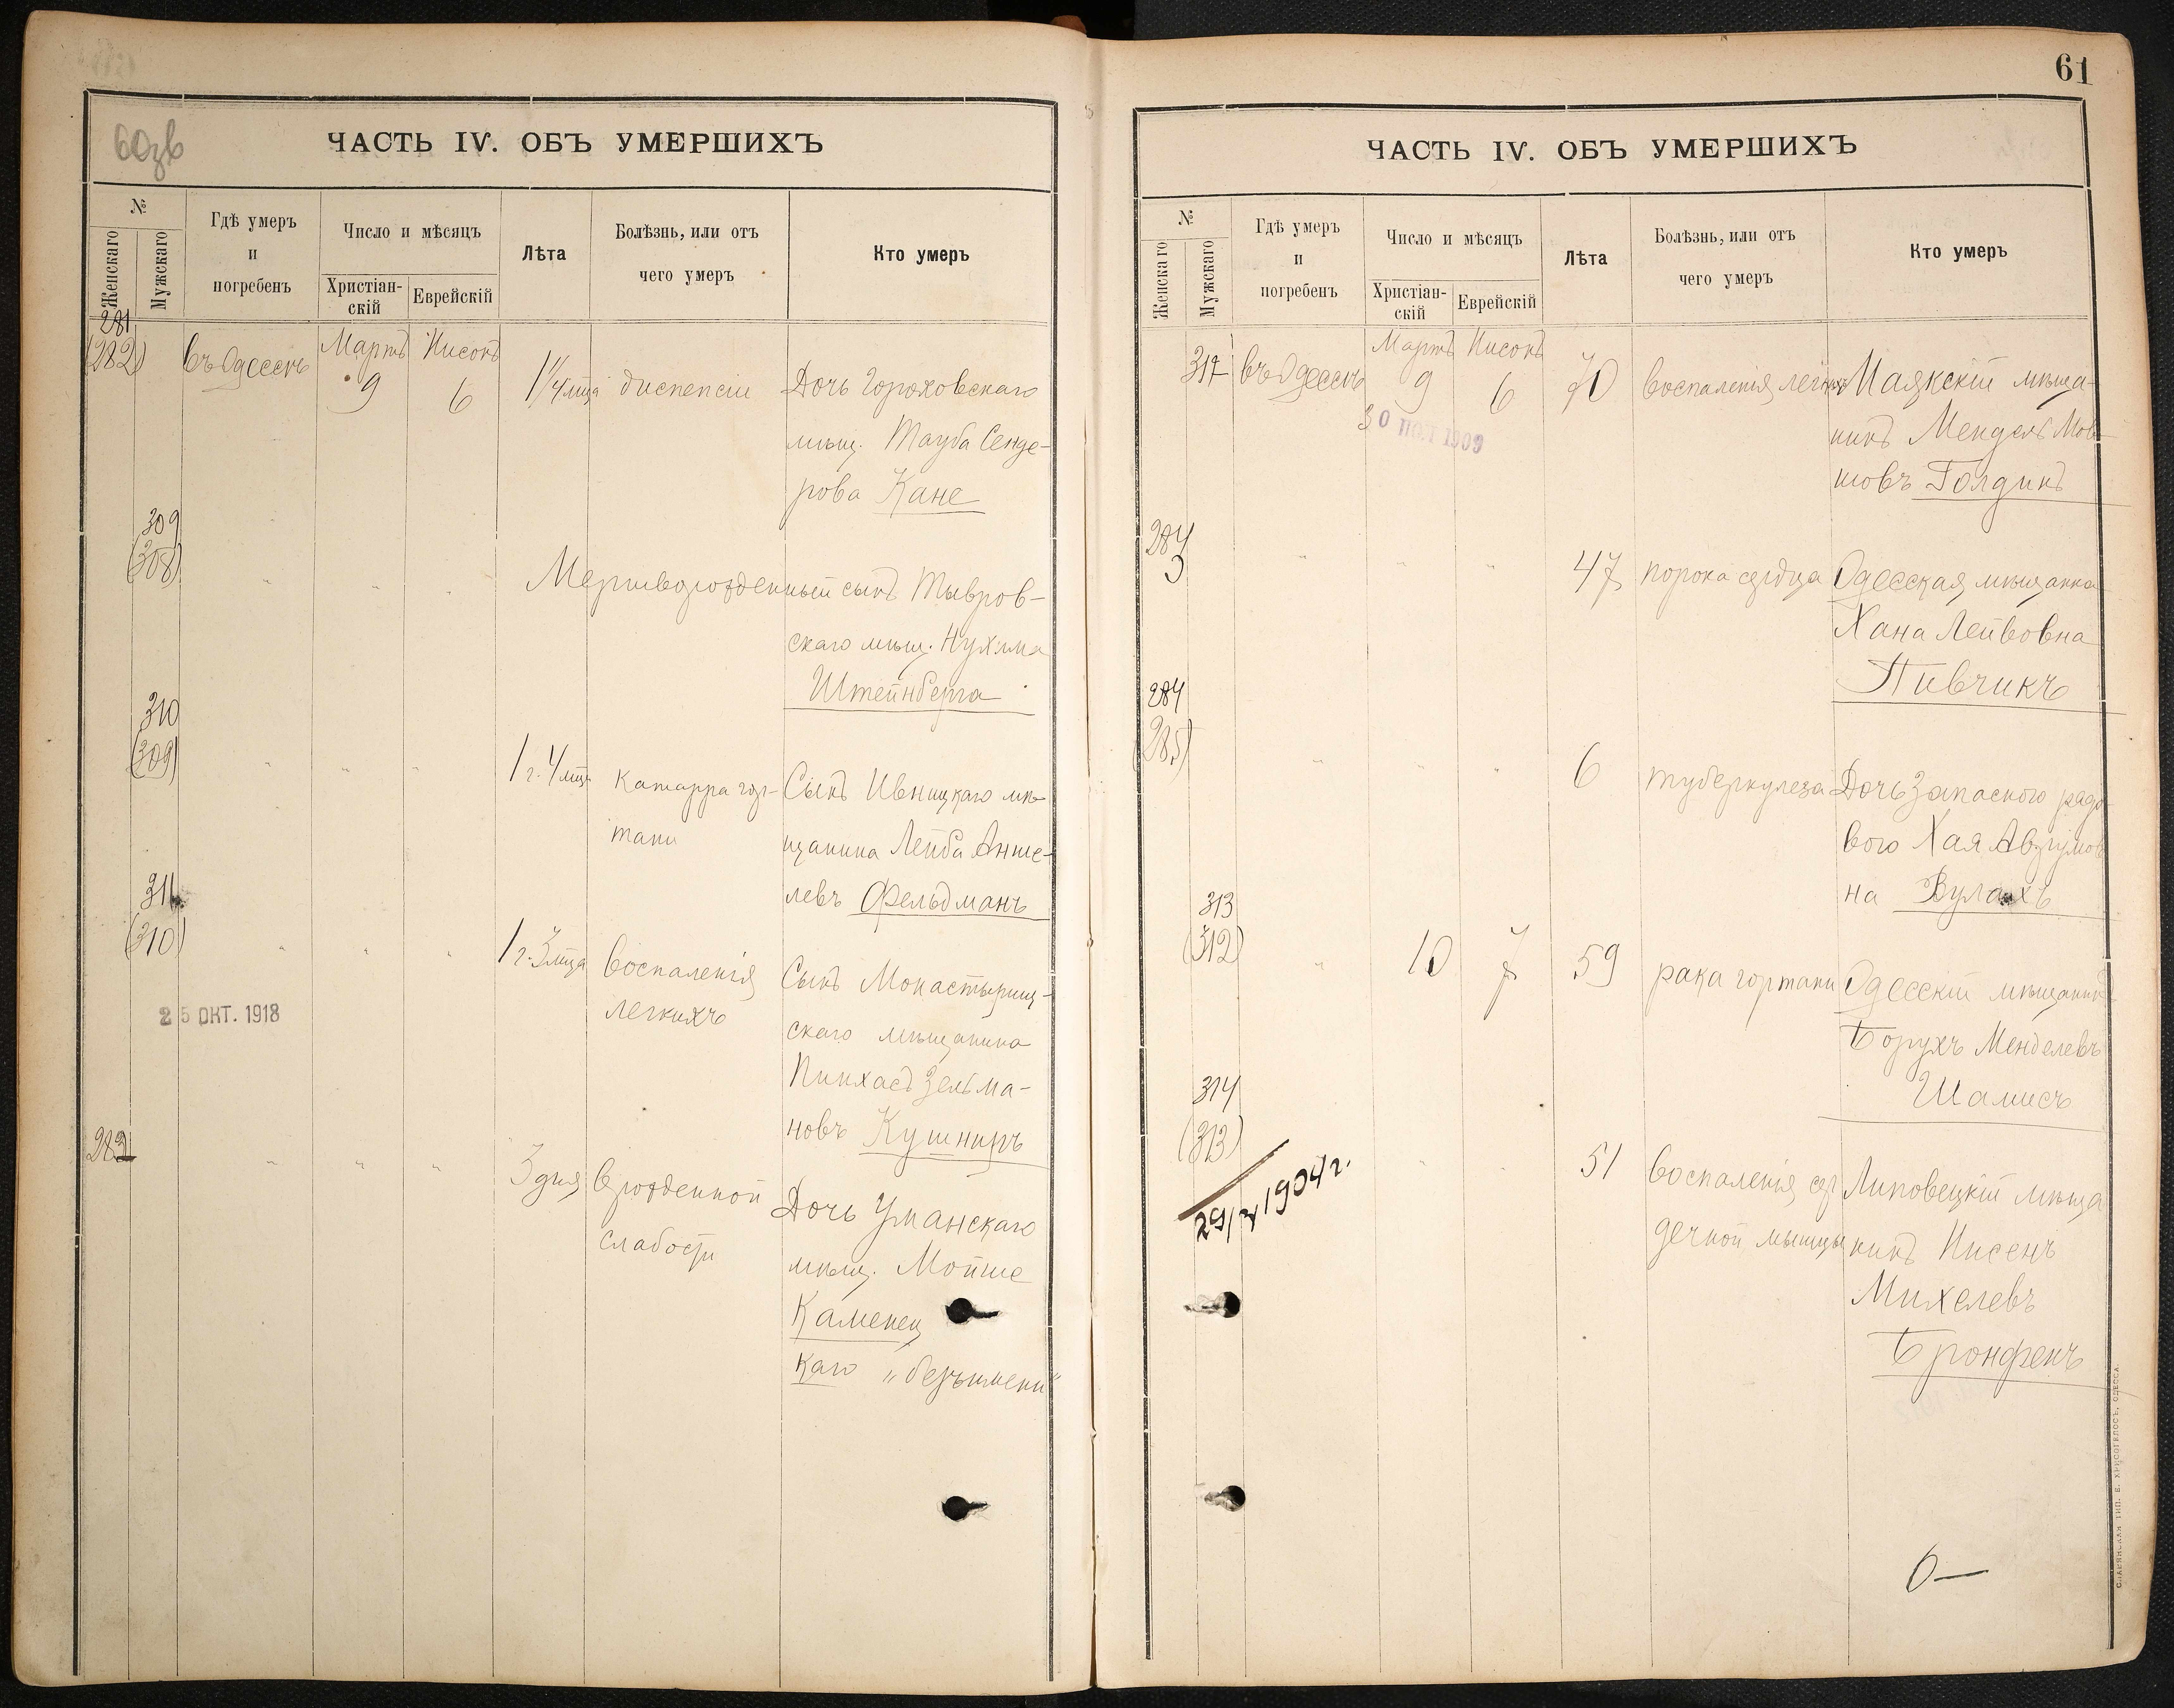 60зв
ЧАСТЬ IV. ОБЪ УМЕРШИХЪ
№
Женскаго
Мужскаго
Гдѣ умеръ
и
погребенъ
Число и мѣсяцъ
Христіан-
скій
Еврейскій
Лѣта
Болѣзнь, или отъ
чего умеръ
Кто умеръ
281
(282)
въ Одессѣ
Мартъ
9
Нисонъ
6
диспепсіи
Дочь Гороховскаго
мѣщ. Тауба Сенде-
рова Кане
309
(308)
" " "
Мертворожденный сынъ Тывров-
скаго мѣщ. Нухима
Штейнберга
310
(309)
" " "
1 г. 4 мѣс
катарра гор-
тани
Сынъ Ивницкаго мѣ-
щанина Лейба Анше-
левъ Фельдманъ
311
(310)
" " "
1 г. 3 мѣца
воспаленія
легкихъ
Сынъ Монастырищ-
скаго мѣщанина
Пинхасъ Зельма-
новъ Кушниръ
25 ОКТ. 1918
" " "
3 дня
врожденной
слабости
Дочь Уманскаго
мѣщ. Мойше
Каменец
каго „безъимени“
61
ЧАСТЬ IV. ОБЪ УМЕРШИХЪ
№
Женскаго
Мужскаго
Гдѣ умеръ
и
погребенъ
Число и мѣсяцъ
Христіан-
скій
Еврейскій
Лѣта
Болѣзнь, или отъ
чего умеръ
Кто умеръ
въ Одессѣ
Мартъ
9
Нисонъ
6
70
воспаленія легкихъ
Маякскій мѣща-
нинъ Мендель Мов-
шовъ Голдинъ
30 1909
284
" " "
47
порока сердца
Одесская мѣщанка
Хана Лейбовна
Пивчикъ
284
(285)
" " "
6
туберкулеза
Дочь запасного рядо-
вого Хая Аврумов
на Вулахъ
313
(312)
"
10
7
59
рака гортани
Одесскій мѣщанинъ
Борухъ Менделевъ
Шамисъ
314
(313)
" "
51
воспаленія сер
дечной мышцы
Липовецкій мѣща
нинъ Нисенъ
Михелевъ
Бронфенъ
1904 г.
СЛАВЯНСКАЯ ТИП. Е. ХРИСОГЕЛОСЪ, ОДЕССА